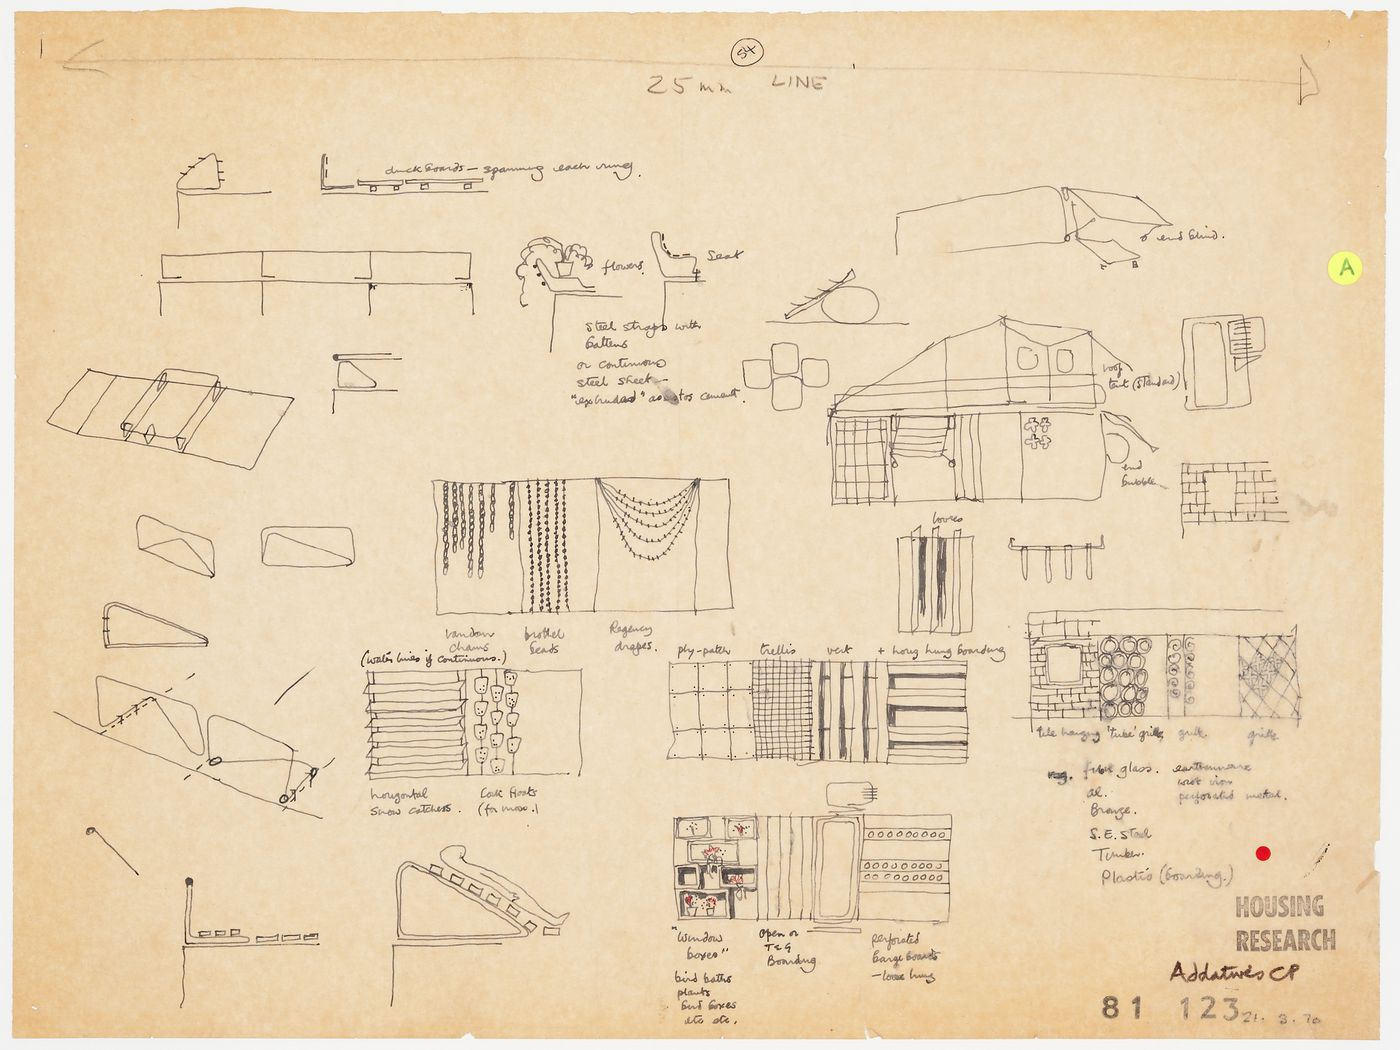 54
25mm LINE
duckboards — spanning each ring.
end blind.
A
flowers.
Seat
Steel straps with
battens
or continuous
steel sheet —
"extruded" cement.
roof
tent (standard)
end
bubble
louvres
random
chains
brothel
beads
Regency
drapes.
(water lines if continuous.)
ply-patch
trellis
vert
+ horiz hung boarding
horizontal
snow catchers.
Cork floats
(for moss.)
tile hanging
'tube' grille
grille
grille
eg. fibre glass.
al.
Bronze.
S.E. Steel
Timber.
Plastic (boarding.)
earthenware
wrot iron
perforated metal.
"window
boxes"
bird baths
plants
bird boxes
etc etc.
open or
T & G
Boarding
perforated
barge boards
— loose hung
HOUSING
RESEARCH
Addatives CP
81 123
21. 3. 70